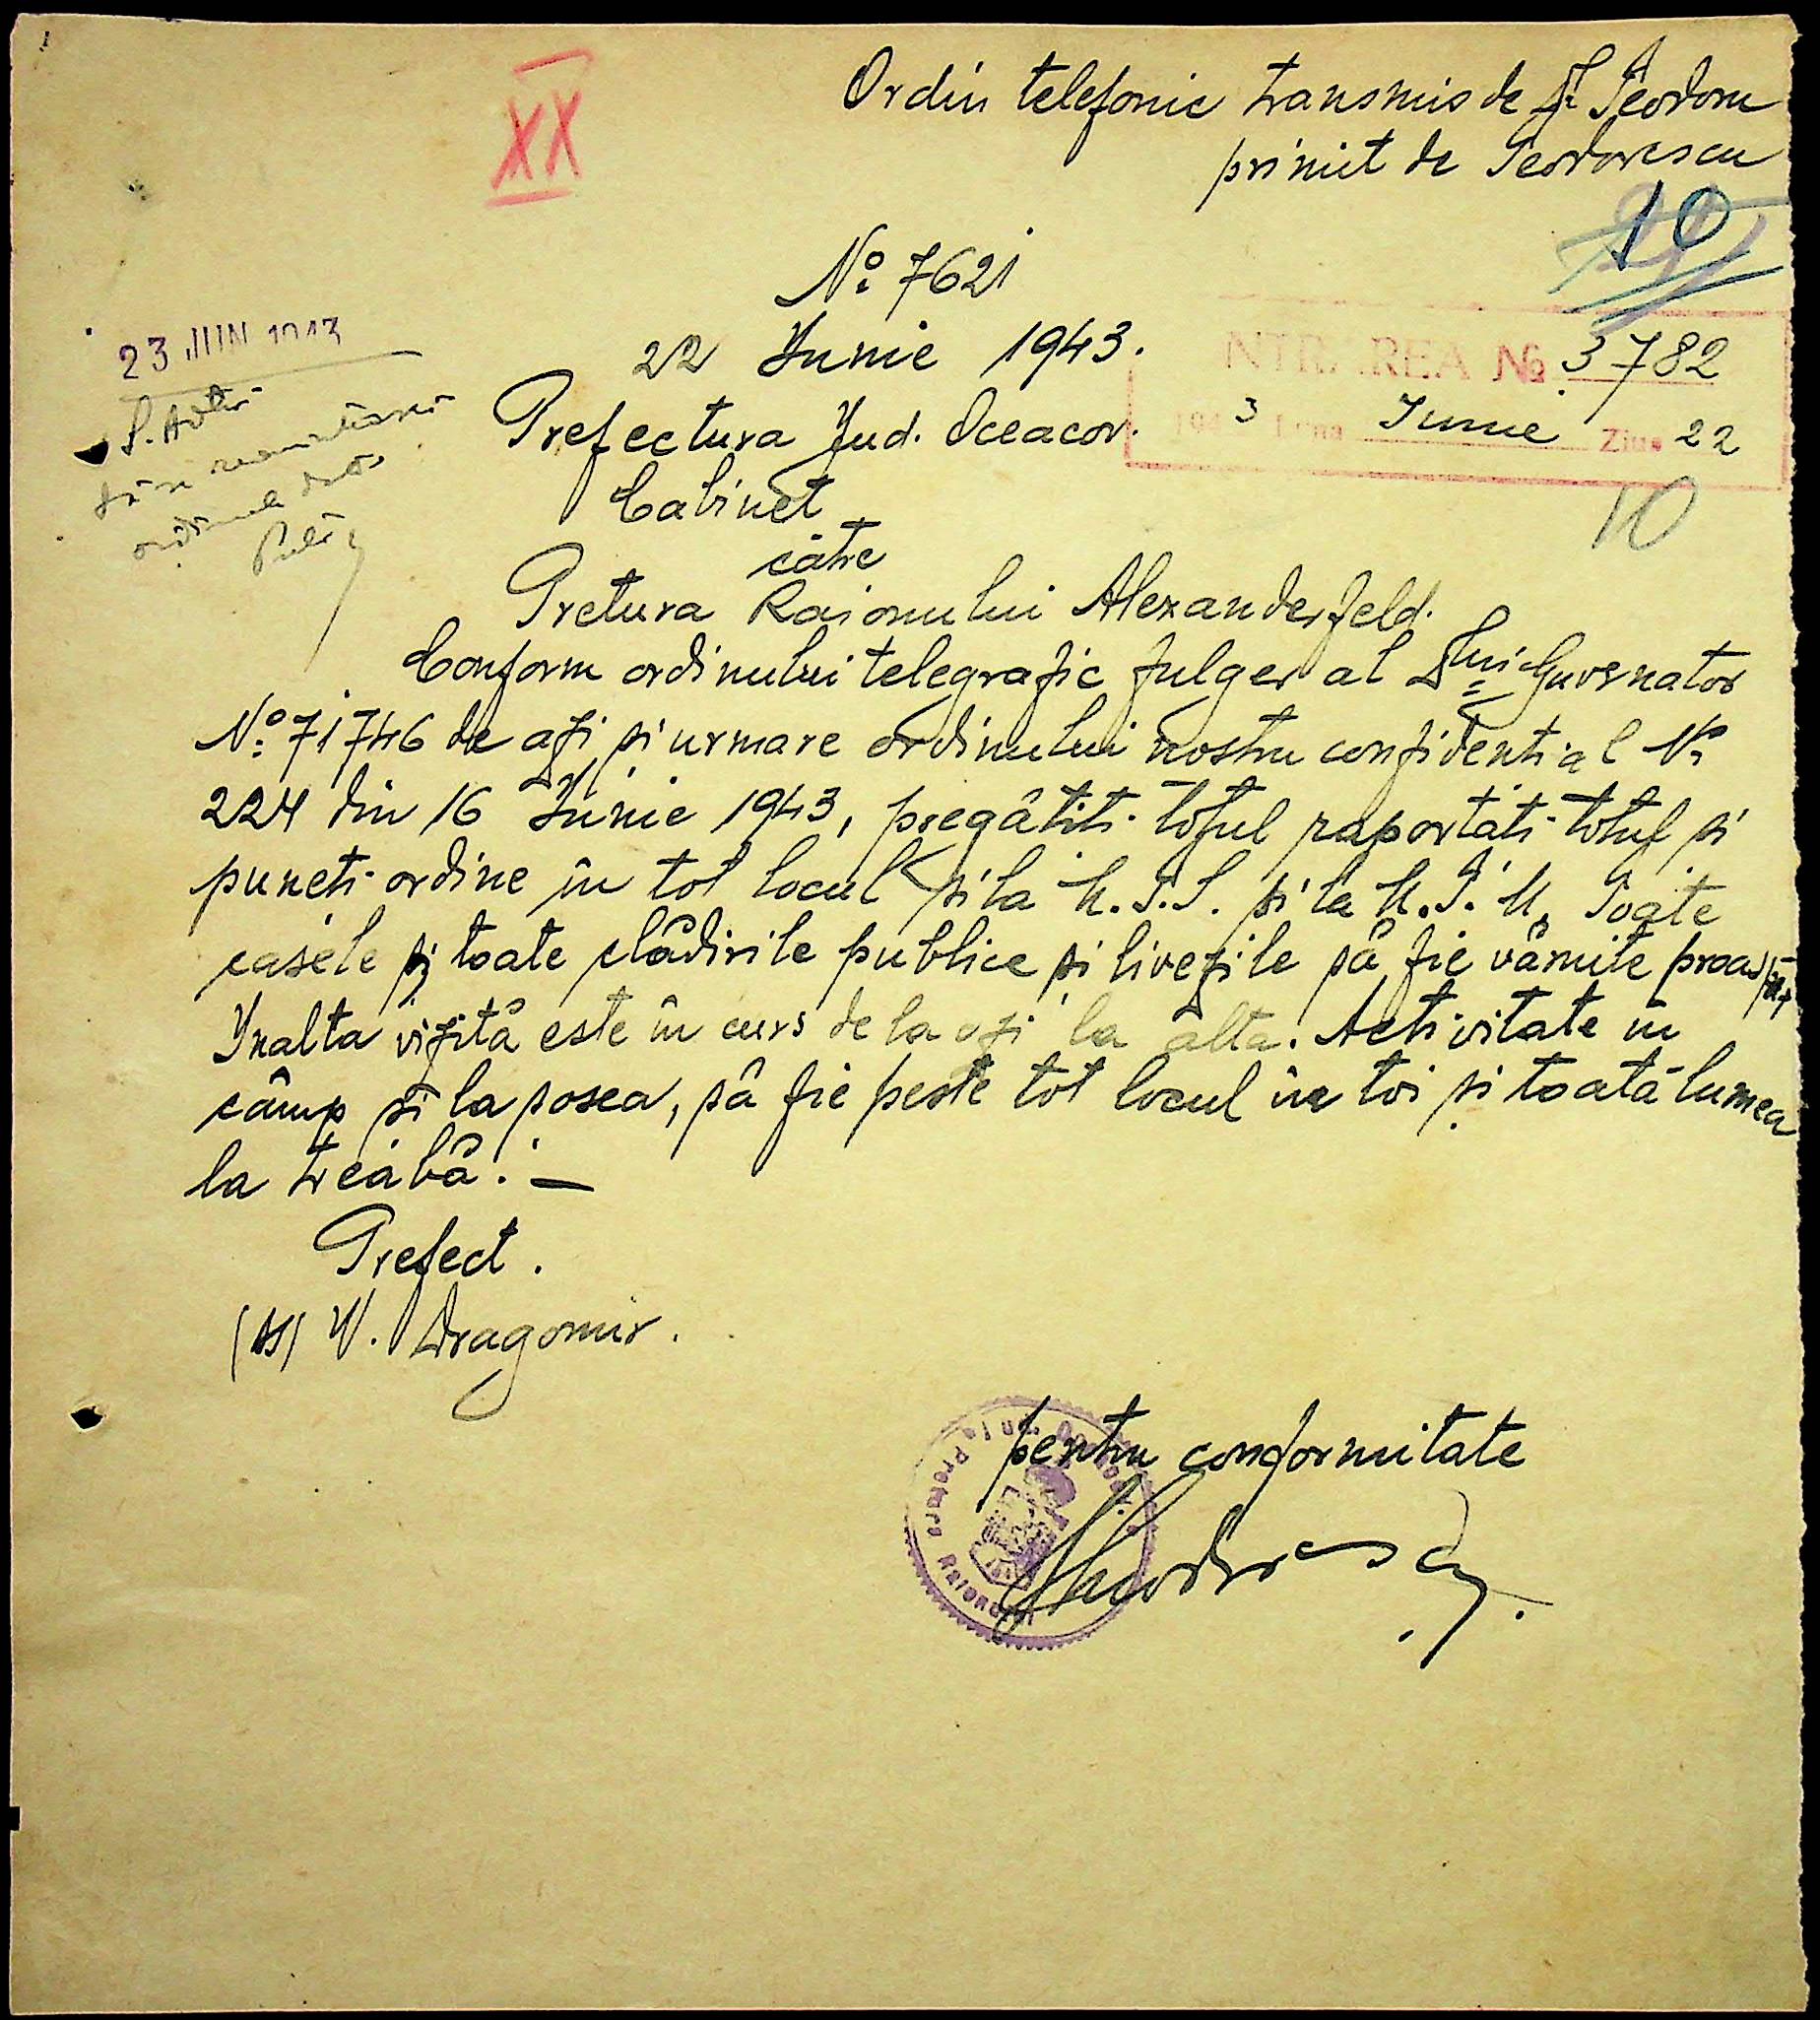 Ordin telefonic transmis de Dl Teodoru
primit de Teodorescu
XX
10
No. 7621
22 Iunie 1943.
INTRAREA No 3782
1943 Luna Iunie Ziua 22
10
23 JUN 1943
ordinele date
Prefectura Jud. Oceacov.
Cabinet
către
Pretura Raionului Alexanderfeld.
Conform ordinului telegrafic fulger al Dlui Guvernator
No. 71746 de azi, și urmare ordinului nostru confidential No
224 din 16 Iunie 1943, pregătiti totul raportati totul și
puneti ordine în tot locul și la S.T.S. și la Toate
casele și toate clădirile publice și livezile să fie văruite proaspăt.
Inalta vizită este în curs de la o zi la alta. Activitate în
câmp și la șosea, să fie peste tot locul în toi și toată lumea
la treabă. —
Prefect.
(ss) V. Dragomir.
pentru conformitate
Pretura Raionului